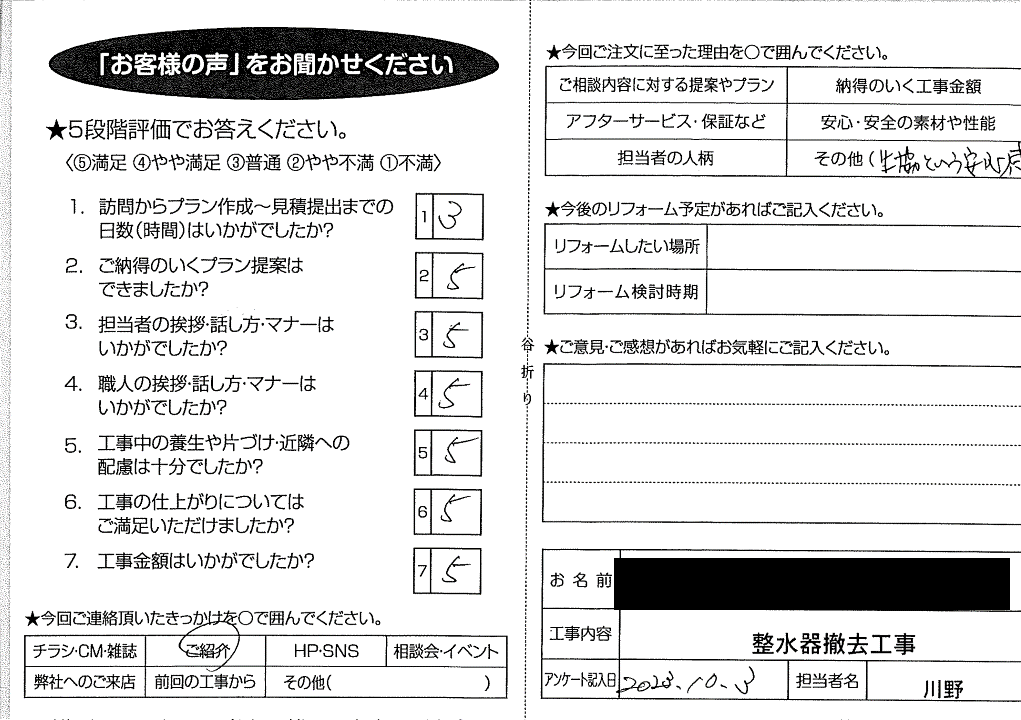 「お客様の声」をお聞かせください
★5段階評価でお答えください。
〈⑤満足 ④やや満足 ③普通 ②やや不満 ①不満〉
1. 訪問からプラン作成～見積提出までの
日数(時間)はいかがでしたか?
1 3
2. ご納得のいくプラン提案は
できましたか?
2 5
3. 担当者の挨拶・話し方・マナーは
いかがでしたか?
3 5
4. 職人の挨拶・話し方・マナーは
いかがでしたか?
4 5
5. 工事中の養生や片づけ・近隣への
配慮は十分でしたか?
5 5
6. 工事の仕上がりについては
ご満足いただけましたか?
6 5
7. 工事金額はいかがでしたか?
7 5
★今回ご連絡頂いたきっかけを○で囲んでください。
チラシ・CM・雑誌 ご紹介 HP・SNS 相談会・イベント
弊社へのご来店 前回の工事から その他( )
谷折り
★今回ご注文に至った理由を○で囲んでください。
ご相談内容に対する提案やプラン 納得のいく工事金額
アフターサービス・保証など 安心・安全の素材や性能
担当者の人柄 その他(生協という安心感
★今後のリフォーム予定があればご記入ください。
リフォームしたい場所
リフォーム検討時期
★ご意見・ご感想があればお気軽にご記入ください。
お名前
工事内容 整水器撤去工事
アンケート記入日 2023.10.3 担当者名 川野